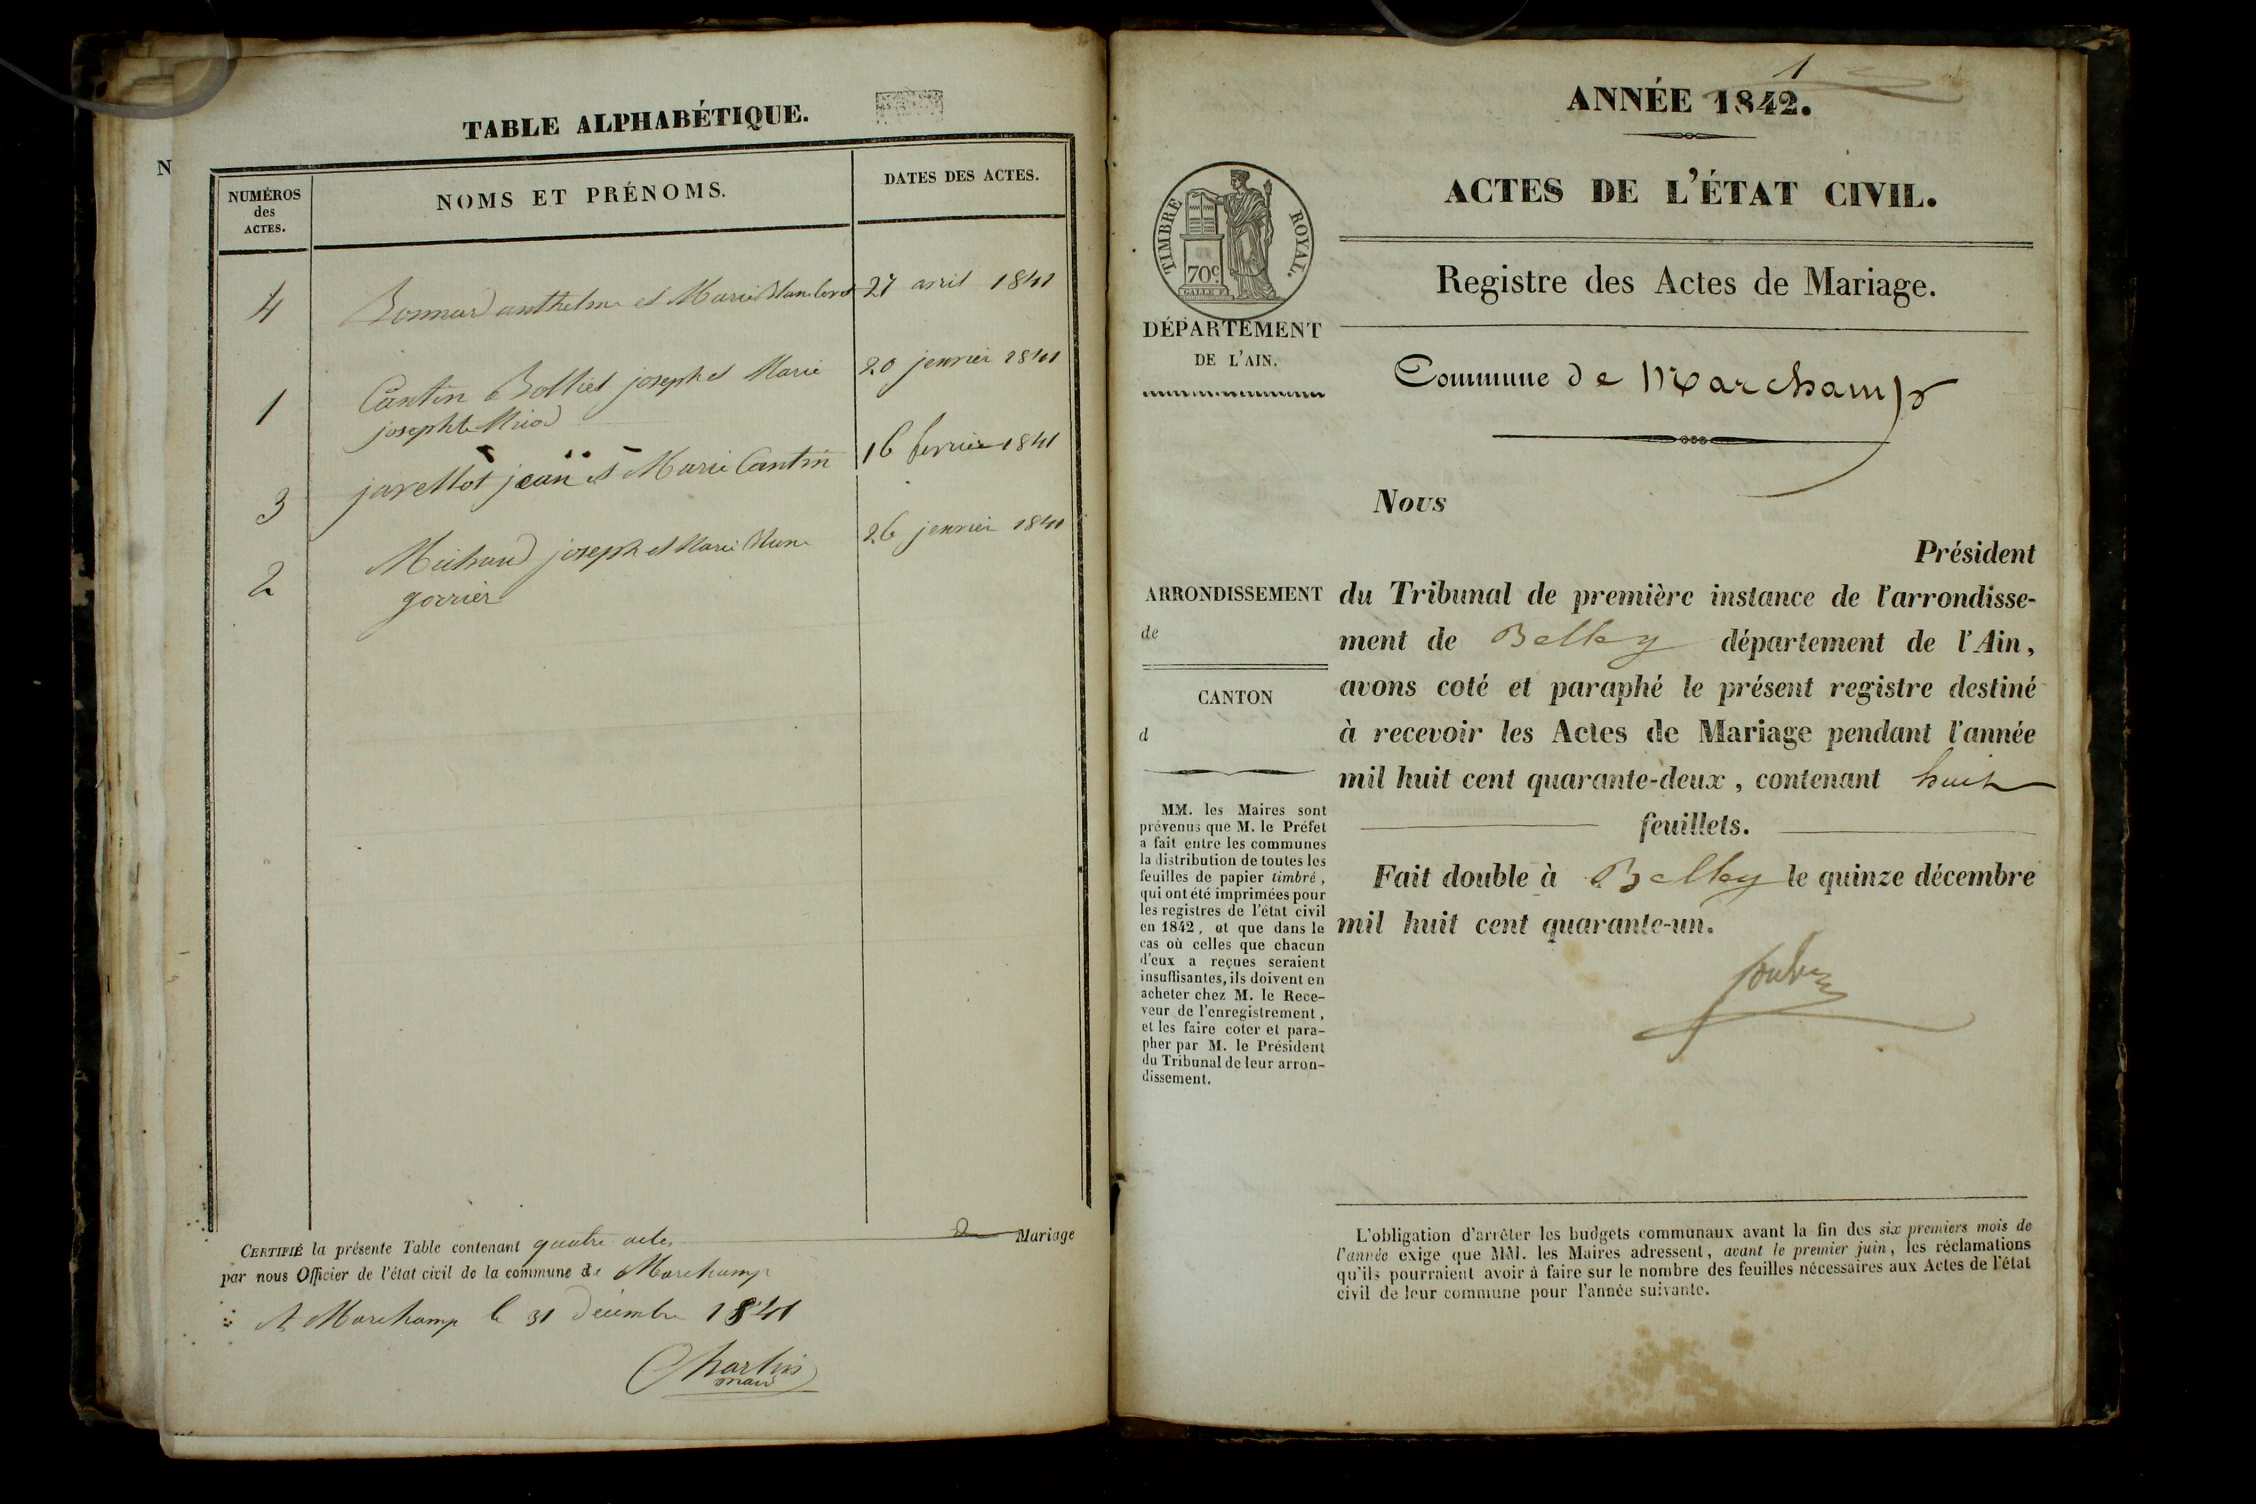 TABLE ALPHABÉTIQUE.
NUMÉROS
des
ACTES.
NOMS ET PRÉNOMS.
DATES DES ACTES.
4 Bonnard anthelme et Marie 27 avril 1841
1 Cantin Bolliet joseph et Marie 20 jenvier 1841
josephte
3 jean et Marie Cantin 16 fevrier 1841
2 Michaud joseph et Marie 26 jenvier 1841
gorrier
CERTIFIÉ la présente Table contenant quatre actes de Mariage
par nous Officier de l'état civil de la commune de Marchamp
A Marchamp le 31 Décembre 1841
maire
N
1
ANNÉE 1842.
ACTES DE L'ÉTAT CIVIL.
Registre des Actes de Mariage.
TIMBRE ROYAL.
70c
GALLE F.
DÉPARTEMENT
DE L'AIN.
Commune de Marchamp
ARRONDISSEMENT
de
CANTON
d
MM. les Maires sont
prévenus que M. le Préfet
a fait entre les communes
la distribution de toutes les
feuilles de papier timbré,
qui ont été imprimées pour
les registres de l'état civil
en 1842, et que dans le
cas où celles que chacun
d'eux a reçues seraient
insuffisantes, ils doivent en
acheter chez M. le Rece-
veur de l'enregistrement,
et les faire coter et para-
pher par M. le Président
du Tribunal de leur arron-
dissement.
Nous
Président
du Tribunal de première instance de l'arrondisse-
ment de Belley département de l'Ain,
avons coté et paraphé le présent registre destiné
à recevoir les Actes de Mariage pendant l'année
mil huit cent quarante-deux, contenant huit
feuillets.
Fait double à Belley le quinze décembre
mil huit cent quarante-un.
L'obligation d'arrêter les budgets communaux avant la fin des six premiers mois de
l'année exige que MM. les Maires adressent, avant le premier juin, les réclamations
qu'ils pourraient avoir à faire sur le nombre des feuilles nécessaires aux Actes de l'état
civil de leur commune pour l'année suivante.